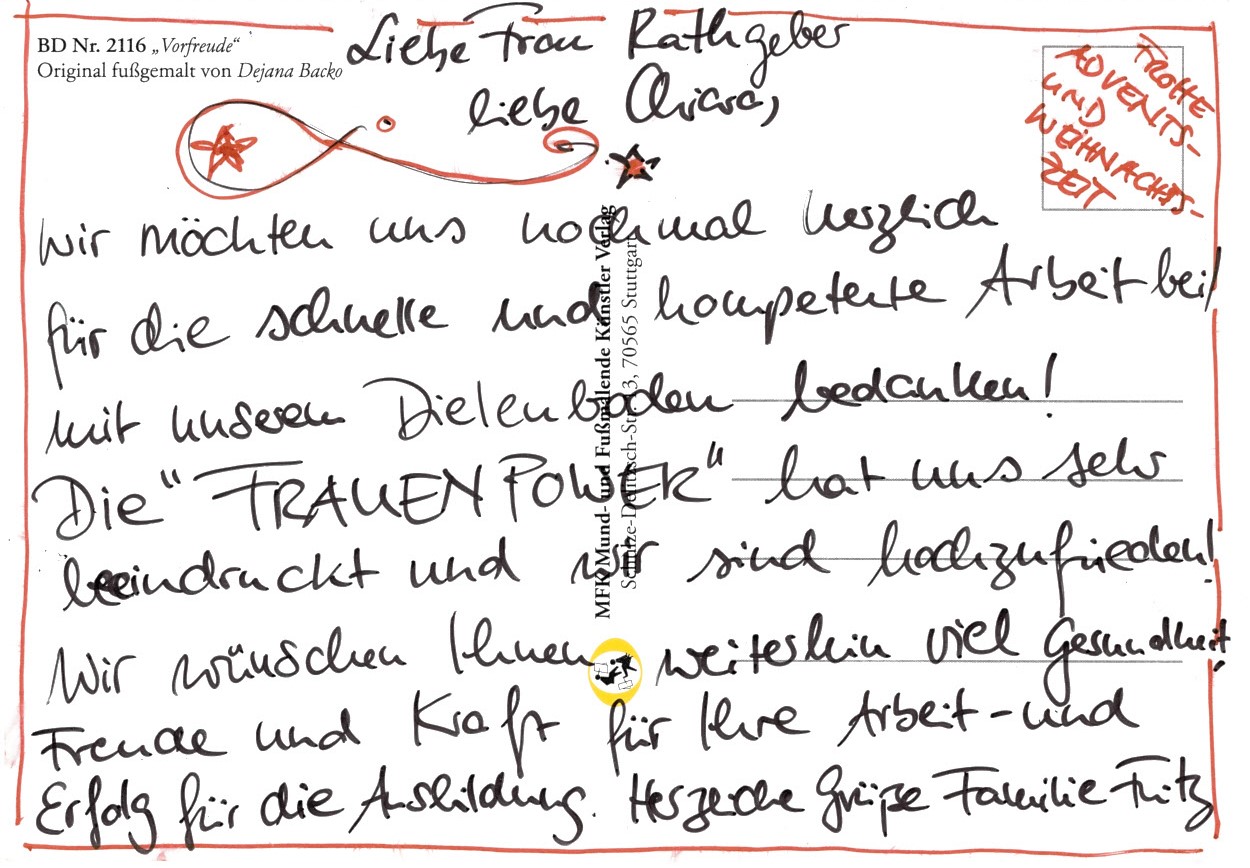 BD Nr. 2116 „Vorfreude“
Original fußgemalt von Dejana Backo
Liebe Frau Rathgeber
liebe Chiara,
FROHE
ADVENTS-
UND
WEIHNACHTS-
ZEIT
wir möchten uns nochmal herzlich
für die schnelle und kompetente Arbeit bei/
mit unserem Dielenboden bedanken!
Die "FRAUENPOWER" hat uns sehr
beeindruckt und wir sind hochzufrieden!
Wir wünschen Ihnen weiterhin viel Gesundheit,
Freude und Kraft für Ihre Arbeit - und
Erfolg für die Ausbildung. Herzliche Grüße Familie Fritz
MFK Mund- und Fußmalende Künstler Verlag
Schulze-Delitzsch-Str. 13, 70565 Stuttgart